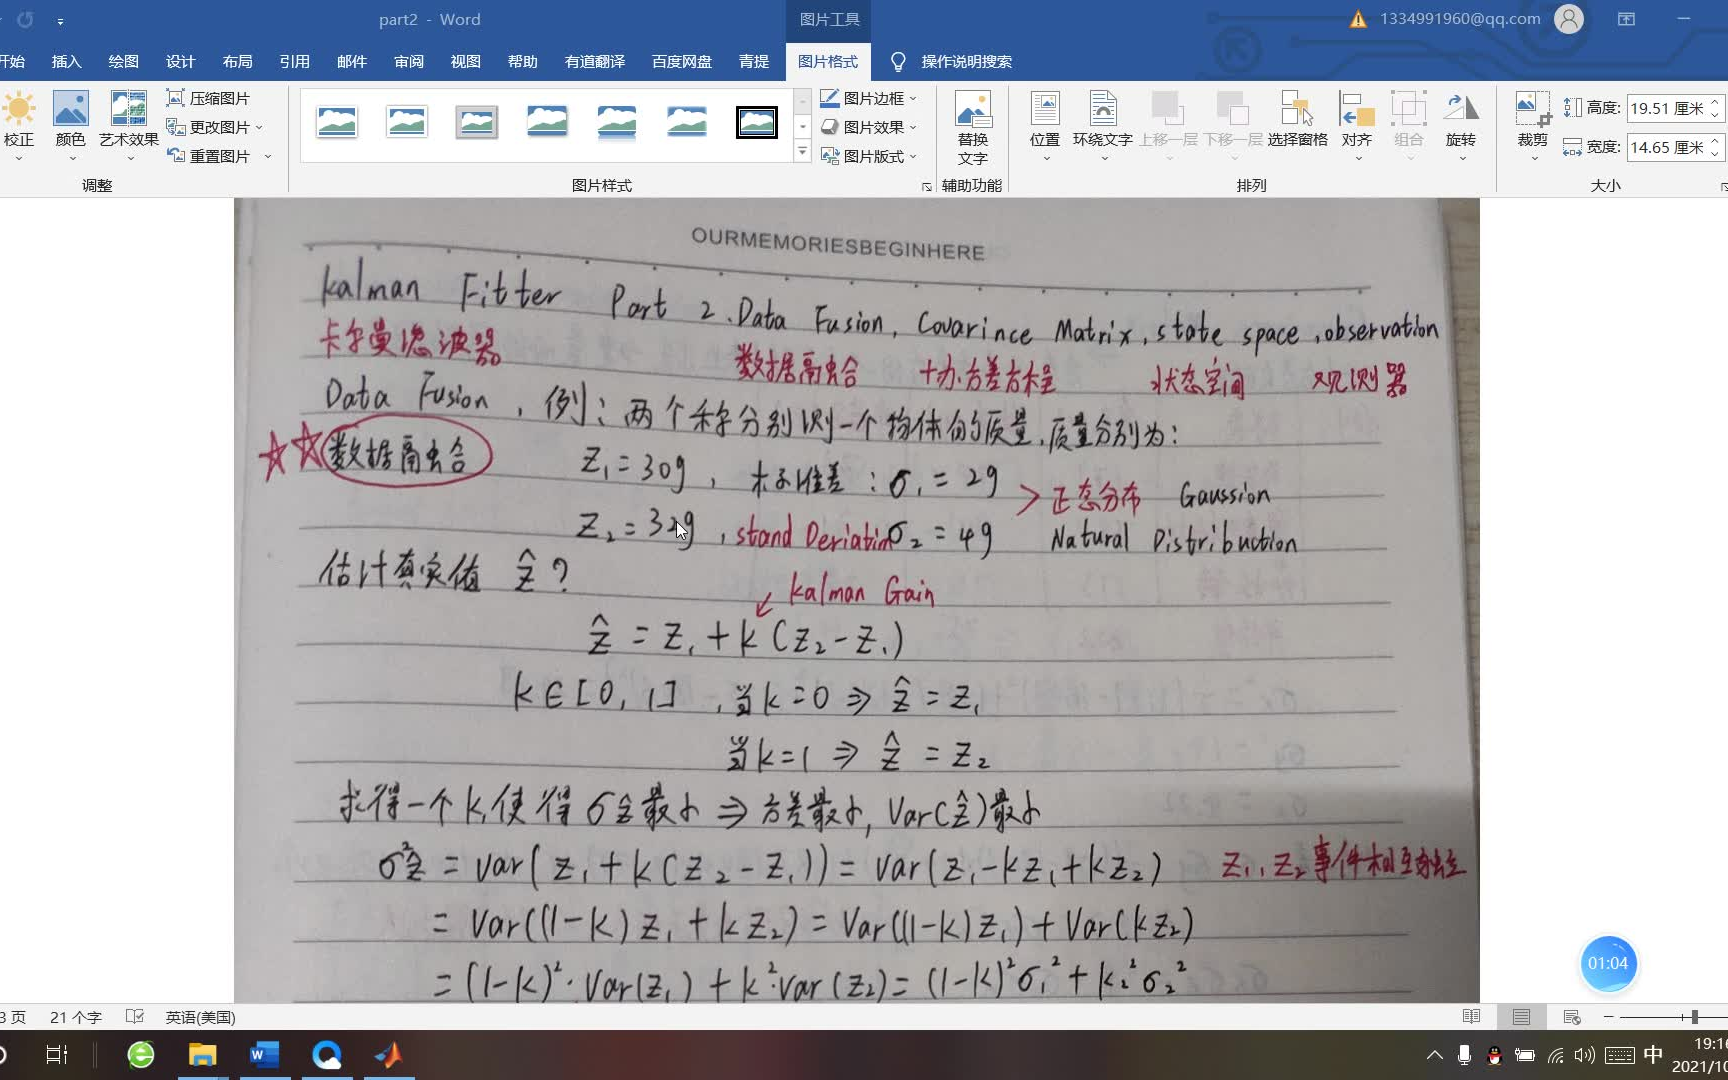 part2 - Word
图片工具
1334991960@qq.com
开始 插入 绘图 设计 布局 引用 邮件 审阅 视图 帮助 有道翻译 百度网盘 青提 图片格式 操作说明搜索
校正 颜色 艺术效果
压缩图片
更改图片
重置图片
调整
图片样式
图片边框
图片效果
图片版式
替换
文字
辅助功能
位置 环绕文字 上移一层 下移一层 选择窗格 对齐 组合 旋转
排列
裁剪
高度: 19.51 厘米
宽度: 14.65 厘米
大小
OURMEMORIESBEGINHERE
kalman Fitter Part 2. Data Fusion, Covarince Matrix, state space, observation
卡尔曼滤波器 数据融合 协方差方程 状态空间 观测器
Data Fusion, 例: 两个秤分别测一个物体的质量, 质量分别为:
数据融合
Z₁ = 30g, 标准差: σ₁ = 2g > 正态分布 Gaussion
Z₂ = 32g, stand Deriation σ₂ = 4g Natural Distribuction
估计真实值 ẑ ?
kalman Gain
ẑ = z₁ + k (z₂ - z₁)
k ∈ [0, 1], 当 k = 0 ⇒ ẑ = z₁
当 k = 1 ⇒ ẑ = z₂
求得一个 k, 使得 σẑ 最小 ⇒ 方差最小, Var(ẑ) 最小
σ²ẑ = Var( z₁ + k (z₂ - z₁)) = Var(z₁ - kz₁ + kz₂) z₁, z₂ 事件相互独立
= Var((1-k) z₁ + k z₂) = Var((1-k)z₁) + Var(kz₂)
= (1-k)²·Var(z₁) + k²·Var(z₂) = (1-k)²σ₁² + k₂²σ₂²
01:04
3 页 21 个字 英语(美国)
中
19:16
2021/10